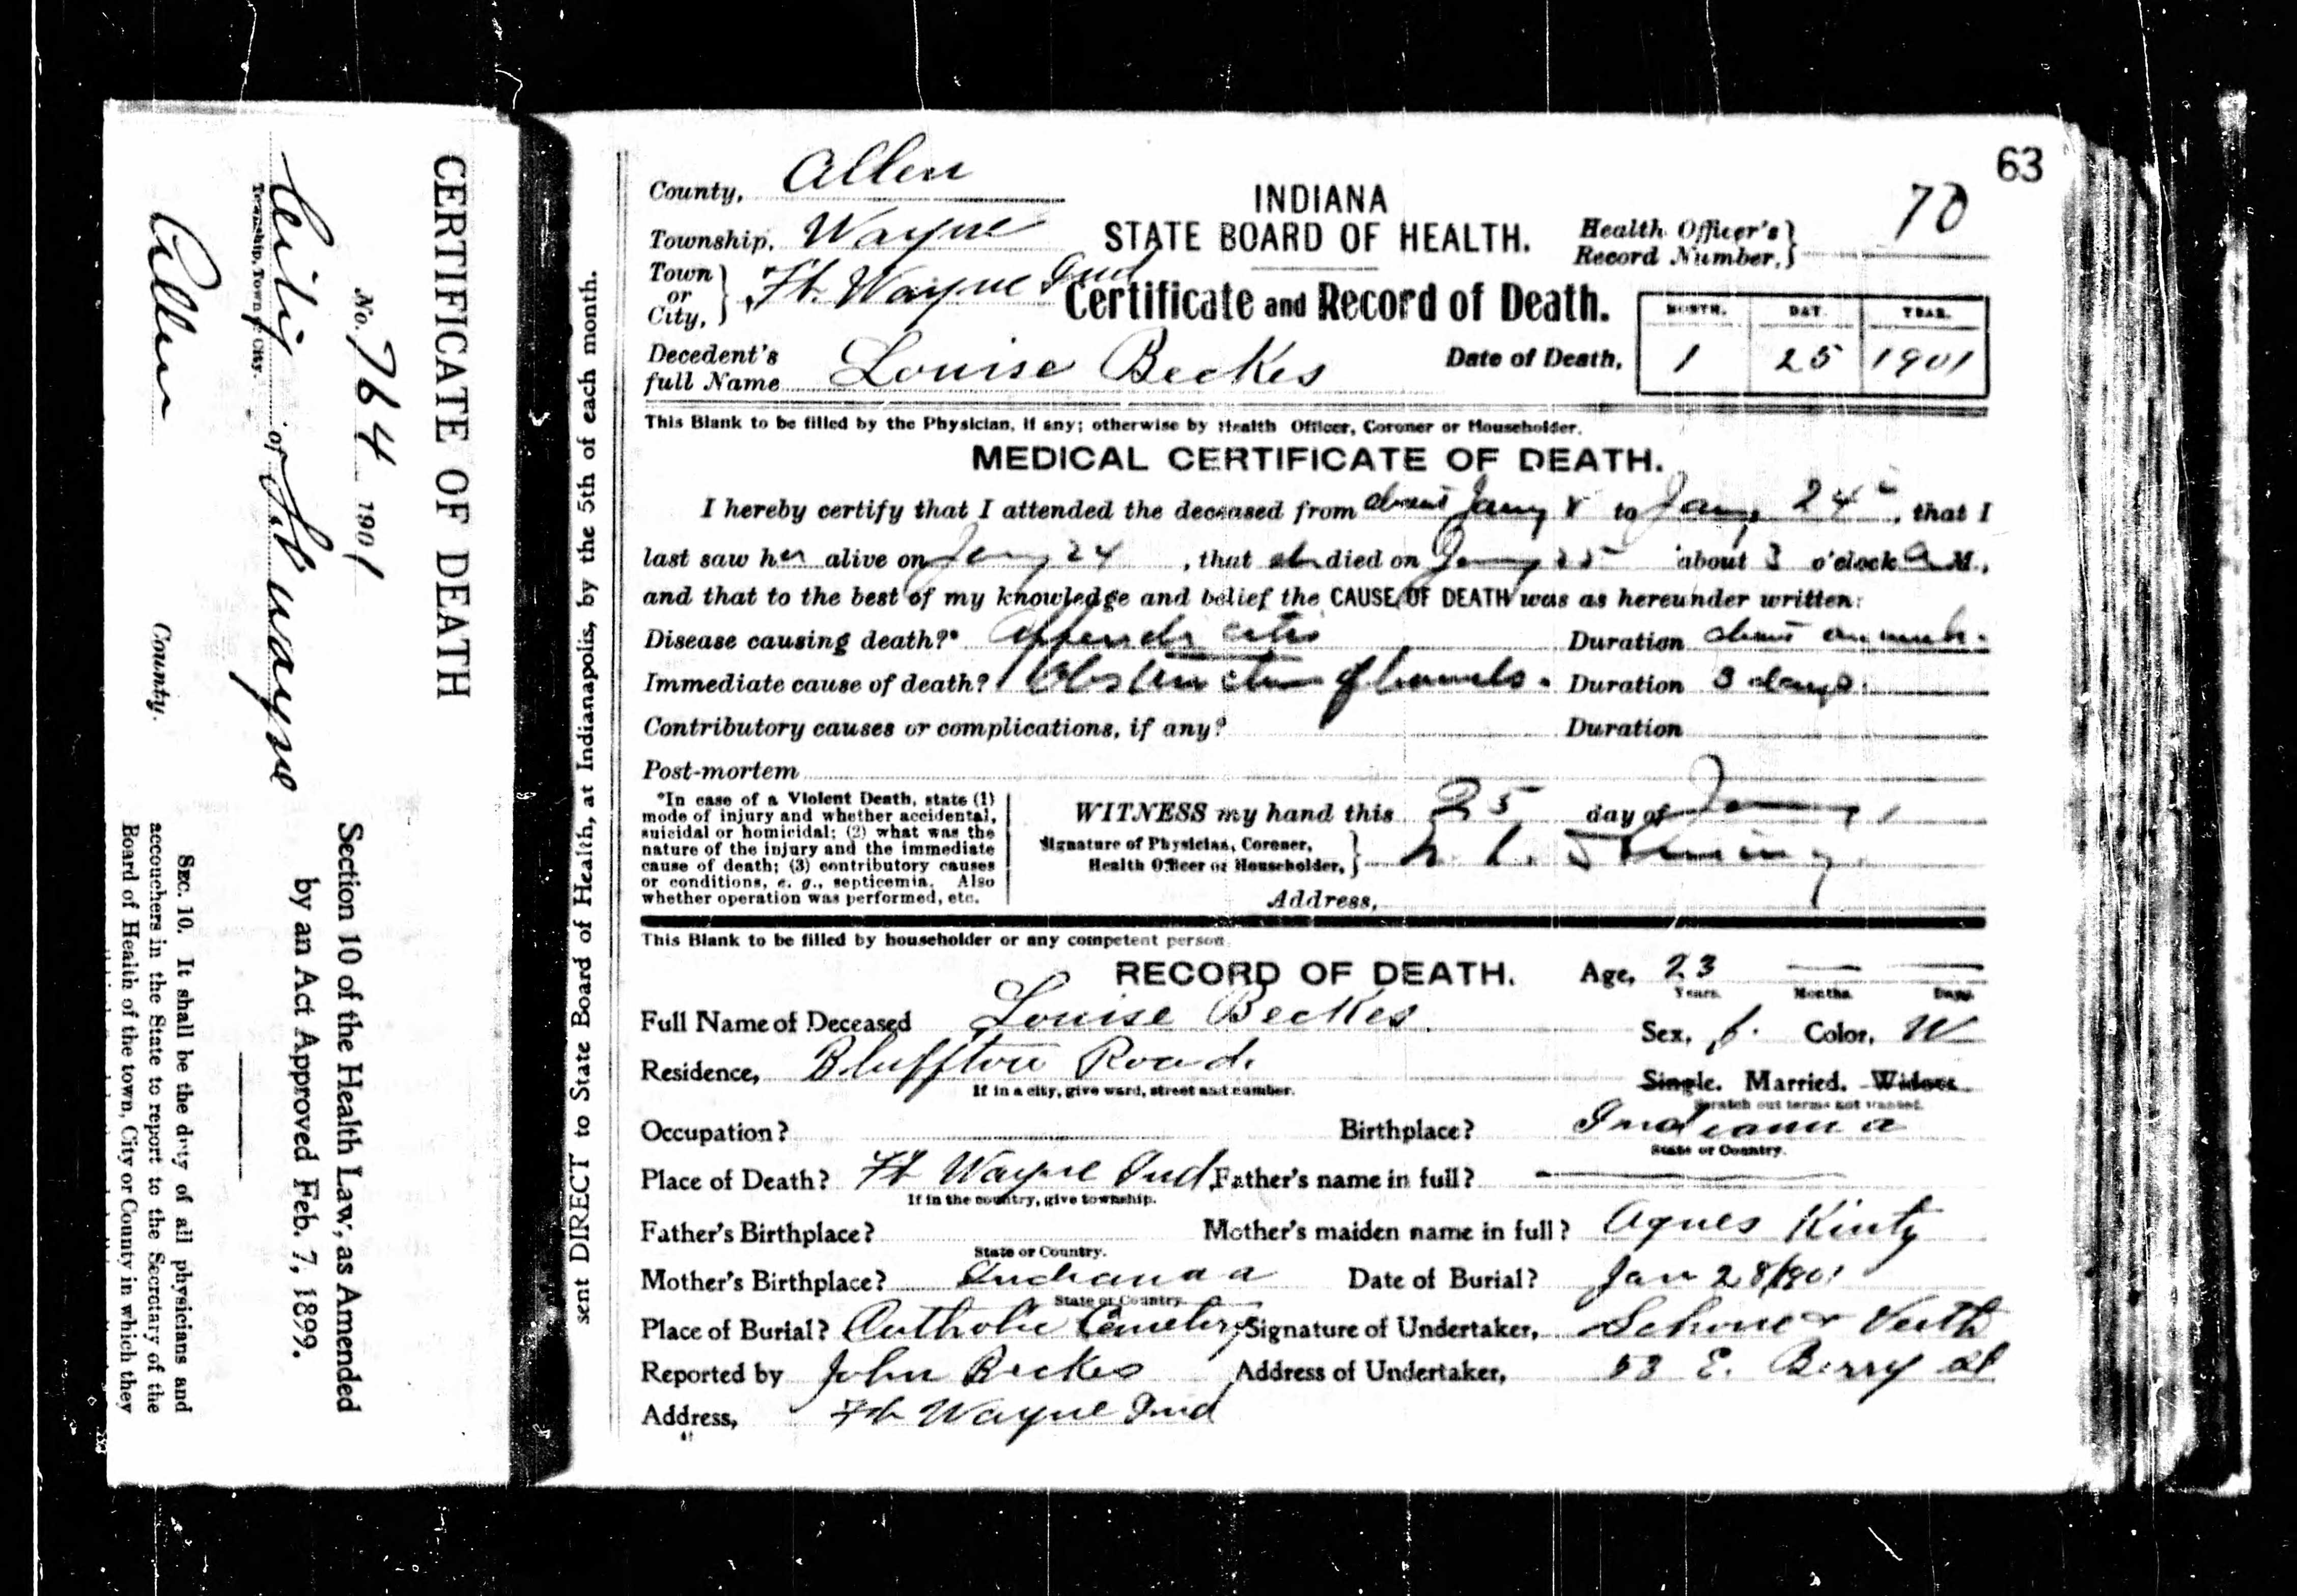 CERTIFICATE OF DEATH
No. 764 1901
City of Ft Wayne
Township, Town or City.
Allen County.
Section 10 of the Health Law, as Amended
by an Act Approved Feb. 7, 1899.
SEC. 10. It shall be the duty of all physicians and
accouchers in the State to report to the Secretary of the
Board of Health of the town, City or County in which they
sent DIRECT to State Board of Health, at Indianapolis, by the 5th of each month.
63
County, Allen
INDIANA
70
Township, Wayne
STATE BOARD OF HEALTH.
Health Officer's Record Number,
Town or City, Ft. Wayne Ind
Certificate and Record of Death.
MONTH. DAY. YEAR.
Decedent's full Name Louise Beckes
Date of Death, 1 25 1901
This Blank to be filled by the Physician, if any; otherwise by Health Officer, Coroner or Householder.
MEDICAL CERTIFICATE OF DEATH.
I hereby certify that I attended the deceased from about Jany 8 to Jany 24, that I
last saw her alive on Jany 24, that she died on Jany 25 about 3 o'clock A M.,
and that to the best of my knowledge and belief the CAUSE OF DEATH was as hereunder written:
Disease causing death?* Appendicitis Duration about
Immediate cause of death? Obstruction of bowels. Duration 3 days
Contributory causes or complications, if any? Duration
Post-mortem
*In case of a Violent Death, state (1)
mode of injury and whether accidental,
suicidal or homicidal; (2) what was the
nature of the injury and the immediate
cause of death; (3) contributory causes
or conditions, e. g., septicemia. Also
whether operation was performed, etc.
WITNESS my hand this 25 day of Jany
Signature of Physician, Coroner,
Health Officer or Householder,
Address,
This Blank to be filled by householder or any competent person.
RECORD OF DEATH. Age, 23
Years. Months. Days.
Full Name of Deceased Louise Beckes.
Sex, f. Color, W
Residence, Bluffton Road.
If in a city, give ward, street and number.
Single. Married. Widow.
Scratch out terms not wanted.
Occupation? Birthplace? Indianna
State or Country.
Place of Death? Ft Wayne Ind. Father's name in full?
If in the country, give township.
Father's Birthplace? Mother's maiden name in full? Agnes Kinty
State or Country.
Mother's Birthplace? Indianaa Date of Burial? Jan 28/1901
State or Country
Place of Burial? Catholic Cemetery Signature of Undertaker, Schone & Veith
Reported by John Beckes Address of Undertaker, 53 E. Berry St
Address, Ft Wayne Ind